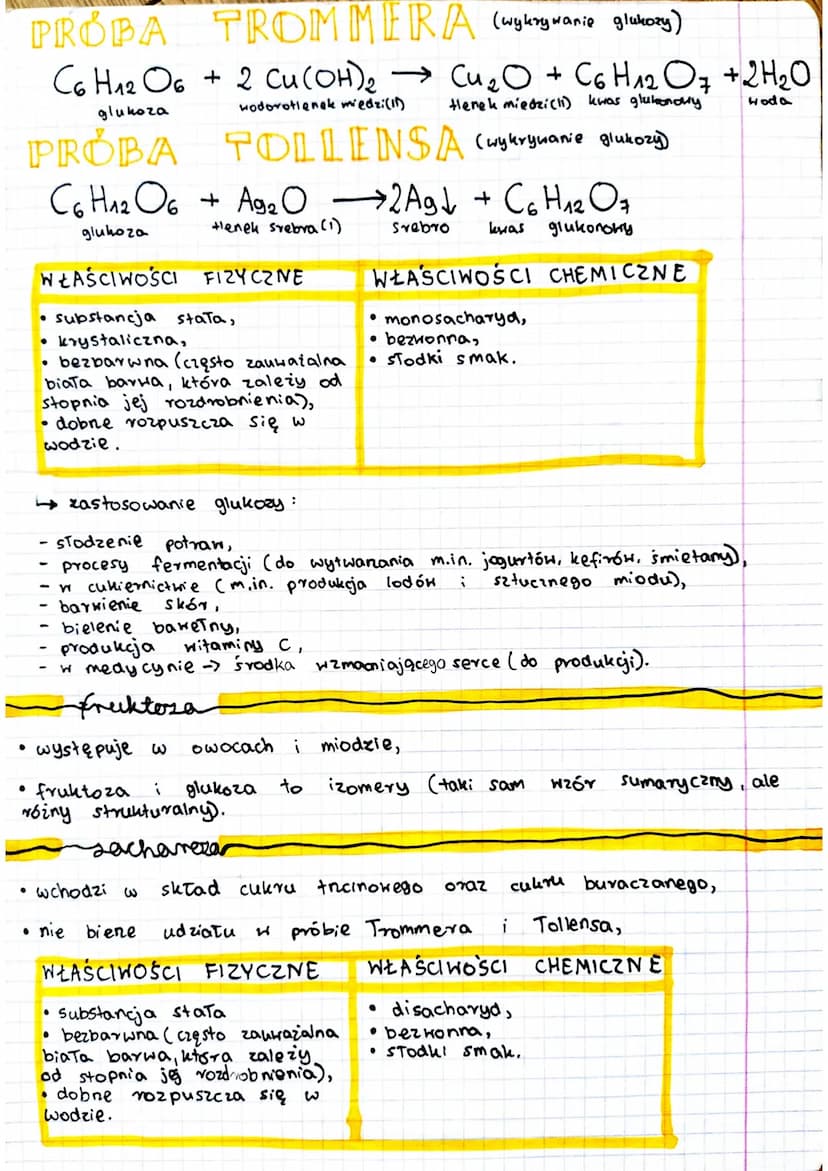 PRÓBA TROMMERA (wykrywanie glukozy)
C₆H₁₂O₆ + 2 Cu(OH)₂ → Cu₂O + C₆H₁₂O₇ + 2H₂O
glukoza wodorotlenek miedzi(II) tlenek miedzi(I) kwas glukonowy woda
PRÓBA TOLLENSA (wykrywanie glukozy)
C₆H₁₂O₆ + Ag₂O → 2Ag↓ + C₆H₁₂O₇
glukoza tlenek srebra(I) srebro kwas glukonowy
WŁAŚCIWOŚCI FIZYCZNE
• substancja stała,
• krystaliczna,
• bezbarwna (często zauważalna
biała barwa, która zależy od
stopnia jej rozdrobnienia),
• dobrze rozpuszcza się w
wodzie.
WŁAŚCIWOŚCI CHEMICZNE
• monosacharyd,
• bezwonna,
• słodki smak.
↳ zastosowanie glukozy:
- słodzenie potraw,
- procesy fermentacji (do wytwarzania m.in. jogurtów, kefirów, śmietany),
- w cukiernictwie (m.in. produkcja lodów i sztucznego miodu),
- barwienie skór,
- bielenie bawełny,
- produkcja witaminy C,
- w medycynie → środka wzmacniającego serce (do produkcji).
fruktoza
• występuje w owocach i miodzie,
• fruktoza i glukoza to izomery (taki sam wzór sumaryczny, ale
różny strukturalny).
sacharoza
• wchodzi w skład cukru trzcinowego oraz cukru buraczanego,
• nie bierze udziału w próbie Trommera i Tollensa,
WŁAŚCIWOŚCI FIZYCZNE
• substancja stała
• bezbarwna (często zauważalna
biała barwa, która zależy
od stopnia jej rozdrobnienia),
• dobrze rozpuszcza się w
wodzie.
WŁAŚCIWOŚCI CHEMICZNE
• disacharyd,
• bezwonna,
• słodki smak.